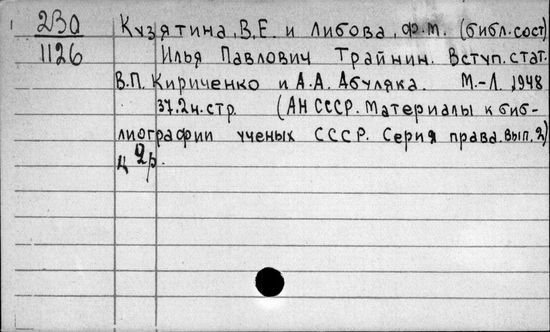 230 Кузятина, В.Е. и Либова, Ф.М. (библ. сост)
1126 Илья Павлович Трайнин. Вступ. стат.
В.П. Кириченко и А.А. Абуляка. М.-Л. 1948
37.2н. стр. (АН СССР. Материалы к биб-
лиографии ученых СССР. Серия права. вып. 2)
ц 2р.